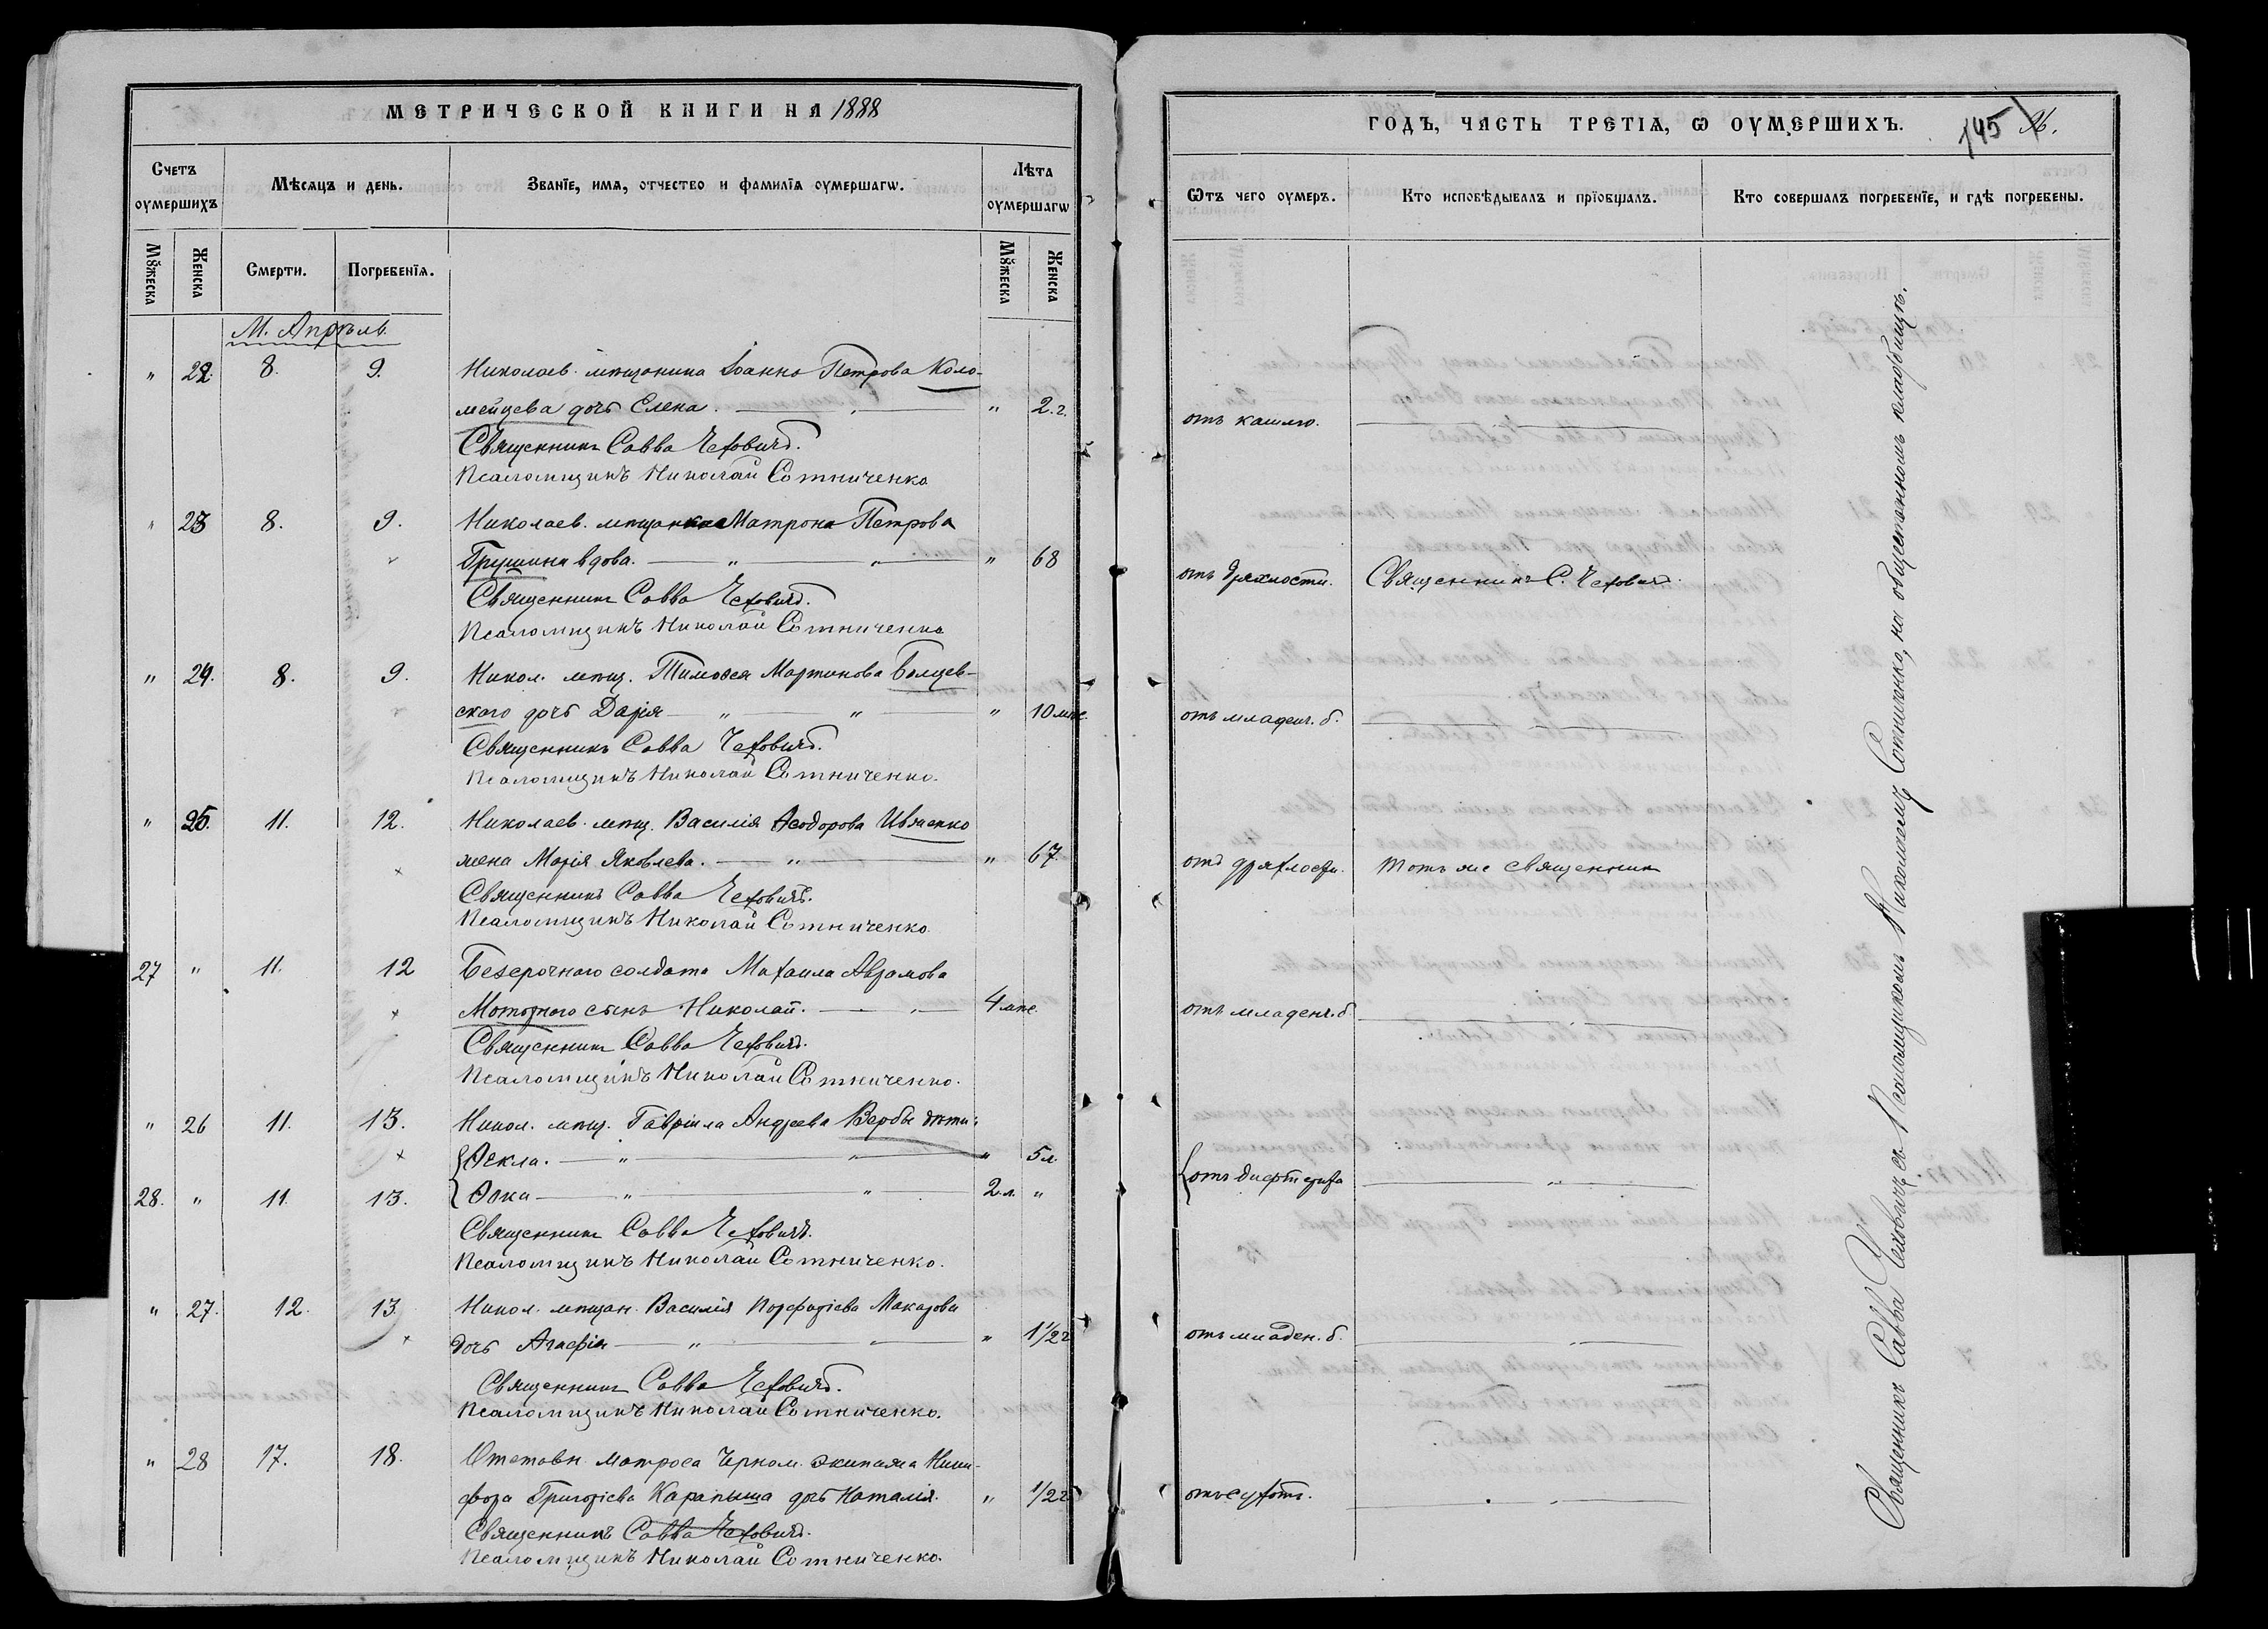 МЕТРИЧЕСКОЙ КНИГИ НА 1888
Счетъ оумершихъ
Мѣсяцъ и день.
Званїе, имѧ, отчество и фамилїѧ оумершагѡ.
Лѣта оумершагѡ
Мꙋжеска
Женска
Смерти.
Погребенїѧ.
Мꙋжеска
Женска
М. Апрѣль.
" 22. 8. 9. Николаев. мѣщанина Іоанна Петрова Коло-
мейцева дочь Елена. " 2.г.
Священникъ Савва Чеховичъ.
Псаломщикъ Николай Сотниченко
" 23 8. 9. Николаев. мѣщанка Матрона Петрова
Грушина вдова. " 68
Священникъ Савва Чеховичъ.
Псаломщикъ Николай Сотниченко
" 24. 8. 9. Никол. мѣщ. Тимоѳея Мартинова
ского дочь Дарія " 10 мѣс.
Священникъ Савва Чеховичъ.
Псаломщикъ Николай Сотниченко.
" 25. 11. 12. Николаев. мѣщ. Василія Ѳеодорова Ивженко
жена Марія Яковлева. " 67.
Священникъ Савва Чеховичъ.
Псаломщикъ Николай Сотниченко
27 " 11. 12 Безсрочного солдата Михаила Аврамова
Моторного сынъ Николай. 4 мѣс.
Священникъ Савва Чеховичъ.
Псаломщикъ Николай Сотниченко.
" 26 11. 13. Никол. мѣщ. Гавріила Андреева Вербы дѣти:
Ѳекла. " 5 л.
28. " 11. 13. Ѳока 2.л. "
Священникъ Савва Чеховичъ.
Псаломщикъ Николай Сотниченко.
" 27. 12. 13. Никол. мѣщан. Василія Порфирієва Макарова
дочь Агафія " 1 1/2 г
Священникъ Савва Чеховичъ.
Псаломщикъ Николай Сотниченко.
" 28 17. 18. Отставн. матроса Черном. экипажа Ники-
фора Григорієва Карапыша дочь Наталія. " 1/2 г.
Священникъ Савва Чеховичъ.
Псаломщикъ Николай Сотниченко.
ГОДЪ, ЧАСТЬ ТРЕТІѦ, Ѡ ОУМЕРШИХЪ.
145 96.
Ѿтъ чего оумеръ.
Кто исповѣдывалъ и прїобщалъ.
Кто совершалъ погребенїе, и гдѣ погребены.
отъ кашлю.
отъ дряхлости. Священникъ С. Чеховичъ.
отъ младенч. б.
отъ дряхлости. Тотъ же священникъ
отъ младенч. б
отъ дифтерита
отъ младен. б.
отъ сухотъ.
Священникъ Савва Чеховичъ съ Псаломщикомъ Николаемъ Сотниченко, на общественномъ кладбищѣ.